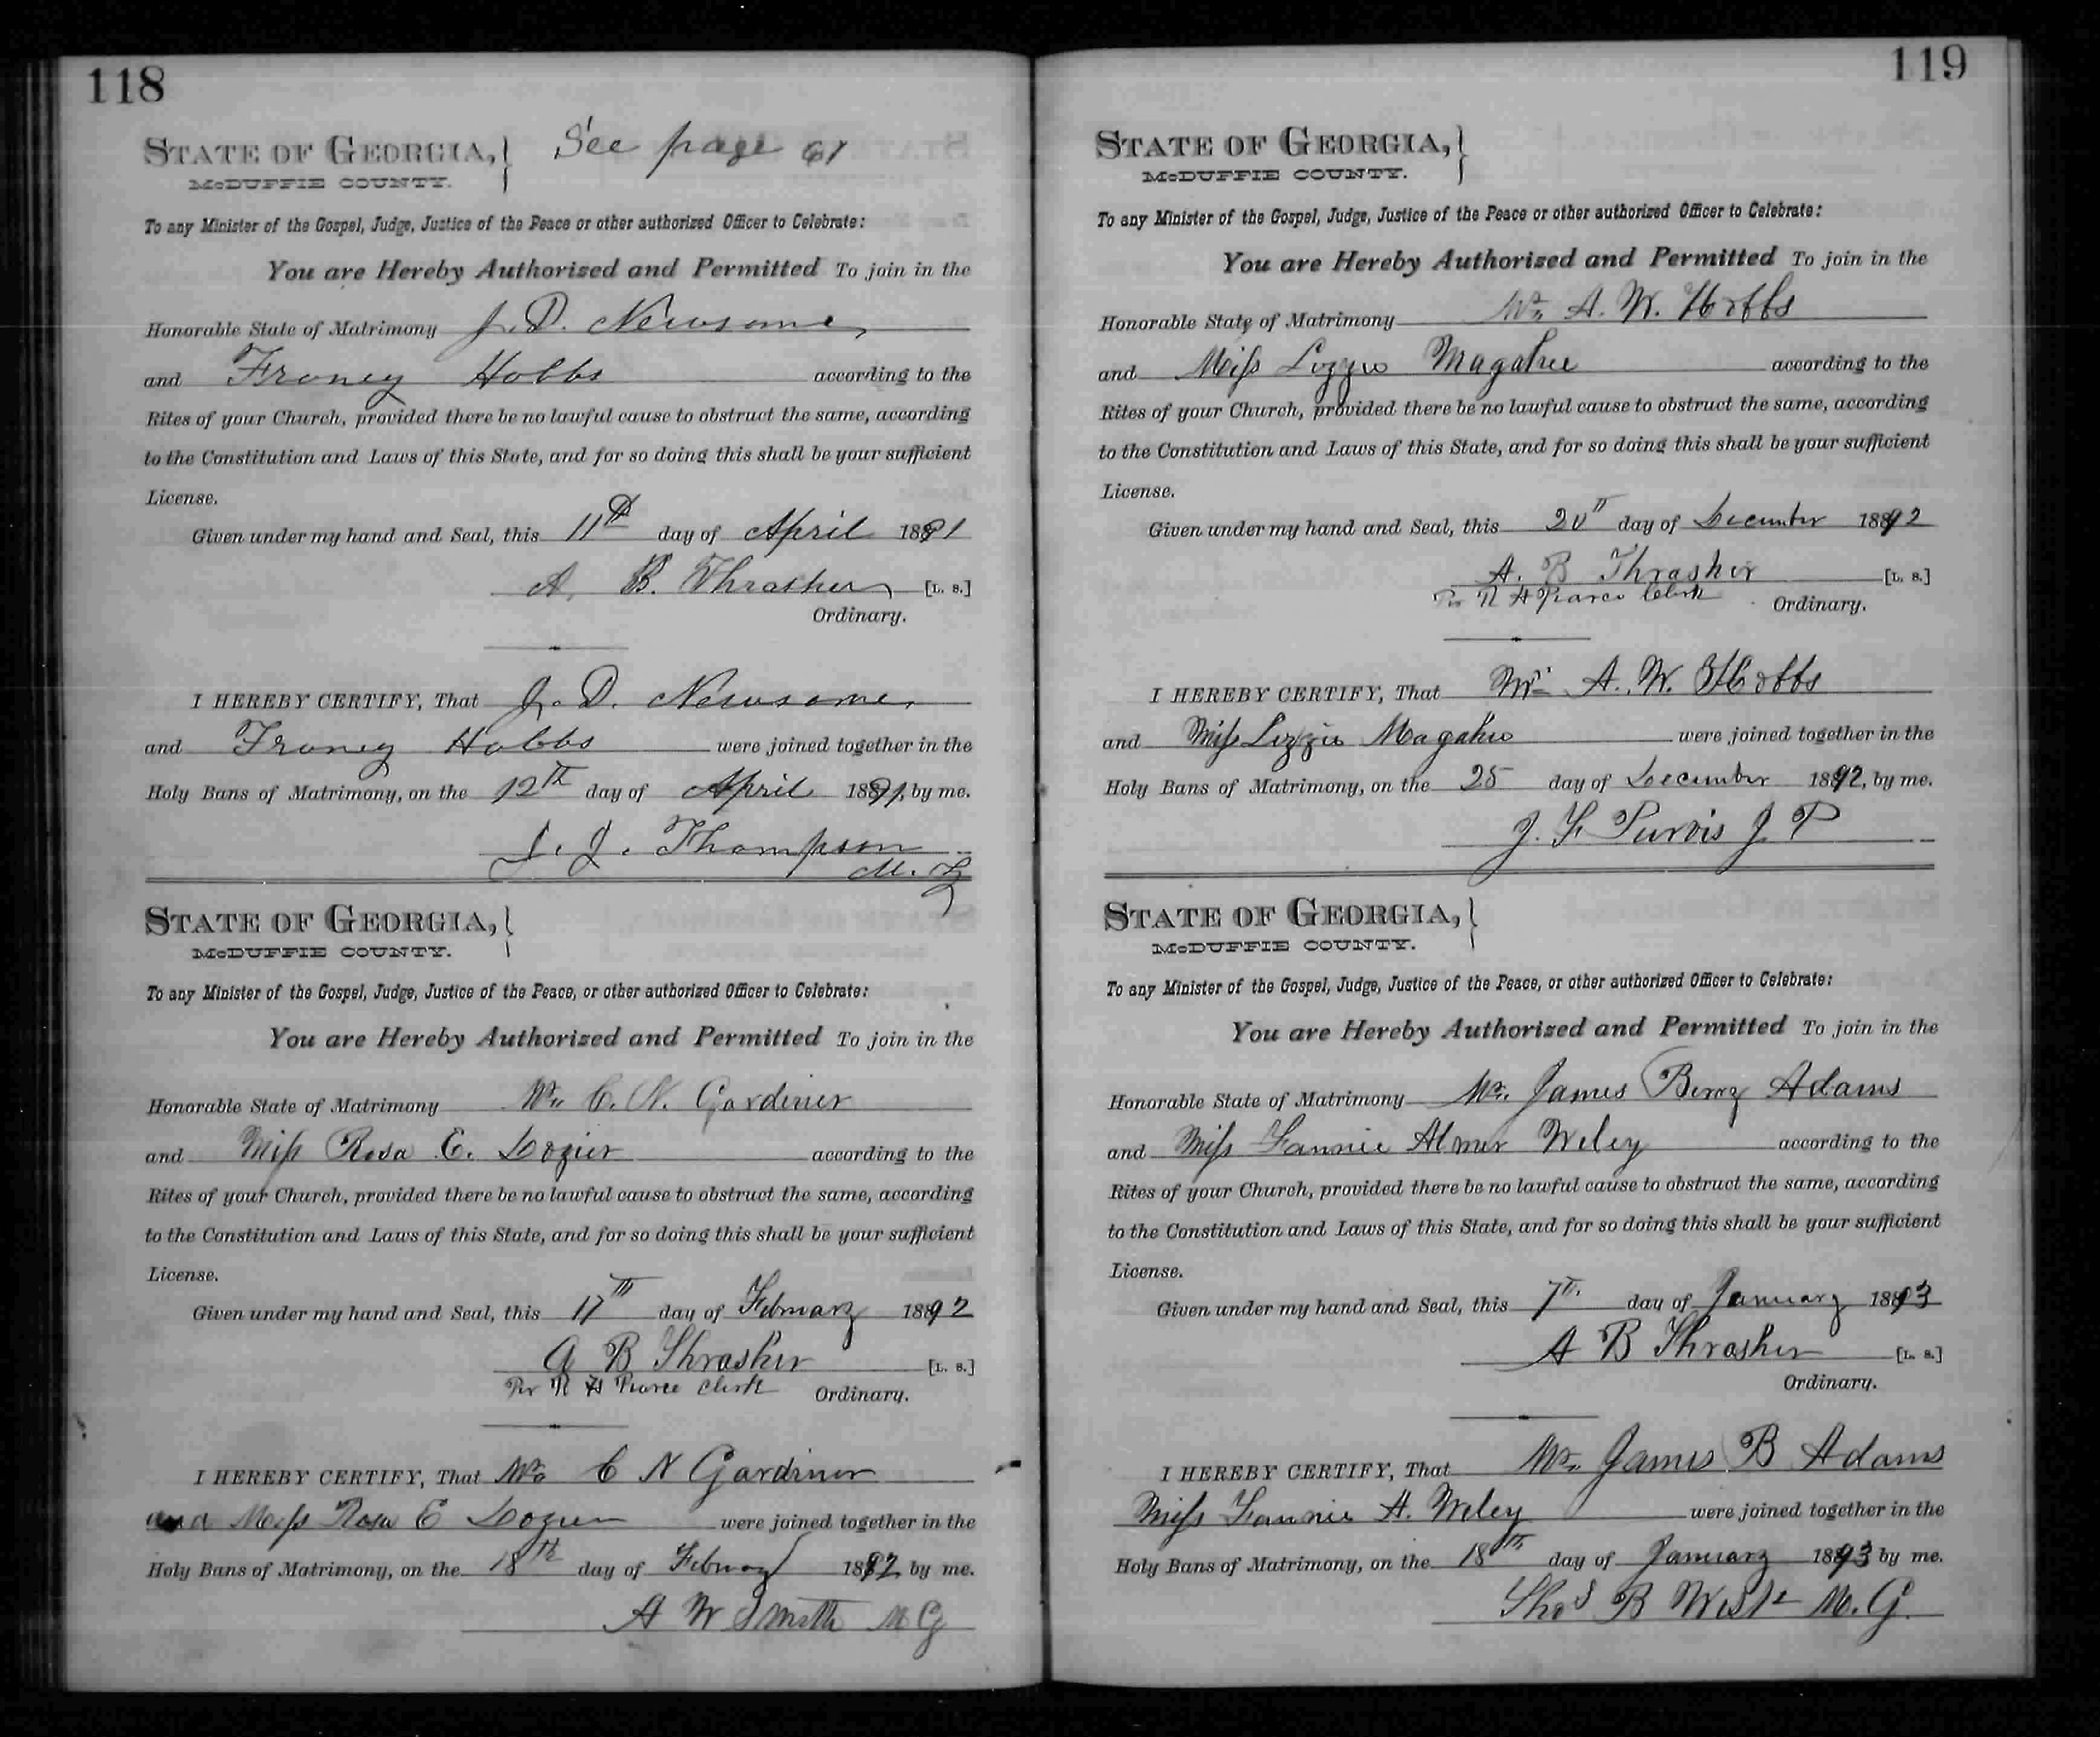 118
STATE OF GEORGIA, See page 61
McDUFFIE COUNTY.
To any Minister of the Gospel, Judge, Justice of the Peace or other authorized Officer to Celebrate:
You are Hereby Authorized and Permitted To join in the
Honorable State of Matrimony J. D. Newsome,
and Froney Hobbs according to the
Rites of your Church, provided there be no lawful cause to obstruct the same, according
to the Constitution and Laws of this State, and for so doing this shall be your sufficient
License.
Given under my hand and Seal, this 11th day of April 1891
A. B. Thrasher [L. S.]
Ordinary.
I HEREBY CERTIFY, That J. D. Newsome,
and Froney Hobbs were joined together in the
Holy Bans of Matrimony, on the 12th day of April 1891, by me.
J. J. Thompson
M. G
STATE OF GEORGIA,
McDUFFIE COUNTY.
To any Minister of the Gospel, Judge, Justice of the Peace, or other authorized Officer to Celebrate:
You are Hereby Authorized and Permitted To join in the
Honorable State of Matrimony Mr. C. N. Gardiner
and Miss Rosa E. Dozier according to the
Rites of your Church, provided there be no lawful cause to obstruct the same, according
to the Constitution and Laws of this State, and for so doing this shall be your sufficient
License.
Given under my hand and Seal, this 17th day of February 1892
A B Thrasher [L. S.]
Per R H Pearce Clerk Ordinary.
I HEREBY CERTIFY, That Mr. C N Gardiner
and Miss Rosa E Dozier were joined together in the
Holy Bans of Matrimony, on the 18th day of February 1892 by me.
A W Smith M G
119
STATE OF GEORGIA,
McDUFFIE COUNTY.
To any Minister of the Gospel, Judge, Justice of the Peace or other authorized Officer to Celebrate:
You are Hereby Authorized and Permitted To join in the
Honorable State of Matrimony Mr. A. W. Hobbs
and Miss Lizzie Magahee according to the
Rites of your Church, provided there be no lawful cause to obstruct the same, according
to the Constitution and Laws of this State, and for so doing this shall be your sufficient
License.
Given under my hand and Seal, this 20th day of December 1892
A. B Thrasher [L. S.]
Per R H Pearce Clerk Ordinary.
I HEREBY CERTIFY, That Mr. A. W. Hobbs
and Miss Lizzie Magahee were joined together in the
Holy Bans of Matrimony, on the 25 day of December 1892, by me.
J. F. Purvis J. P
STATE OF GEORGIA,
McDUFFIE COUNTY.
To any Minister of the Gospel, Judge, Justice of the Peace, or other authorized Officer to Celebrate:
You are Hereby Authorized and Permitted To join in the
Honorable State of Matrimony Mr. James Berry Adams
and Miss Fannie Almer Wiley according to the
Rites of your Church, provided there be no lawful cause to obstruct the same, according
to the Constitution and Laws of this State, and for so doing this shall be your sufficient
License.
Given under my hand and Seal, this 7th. day of January 1893
A B Thrasher [L. S.]
Ordinary.
I HEREBY CERTIFY, That Mr. James B Adams
Miss Fannie A. Wiley were joined together in the
Holy Bans of Matrimony, on the 18th day of January 1893 by me.
Thos B West M. G.